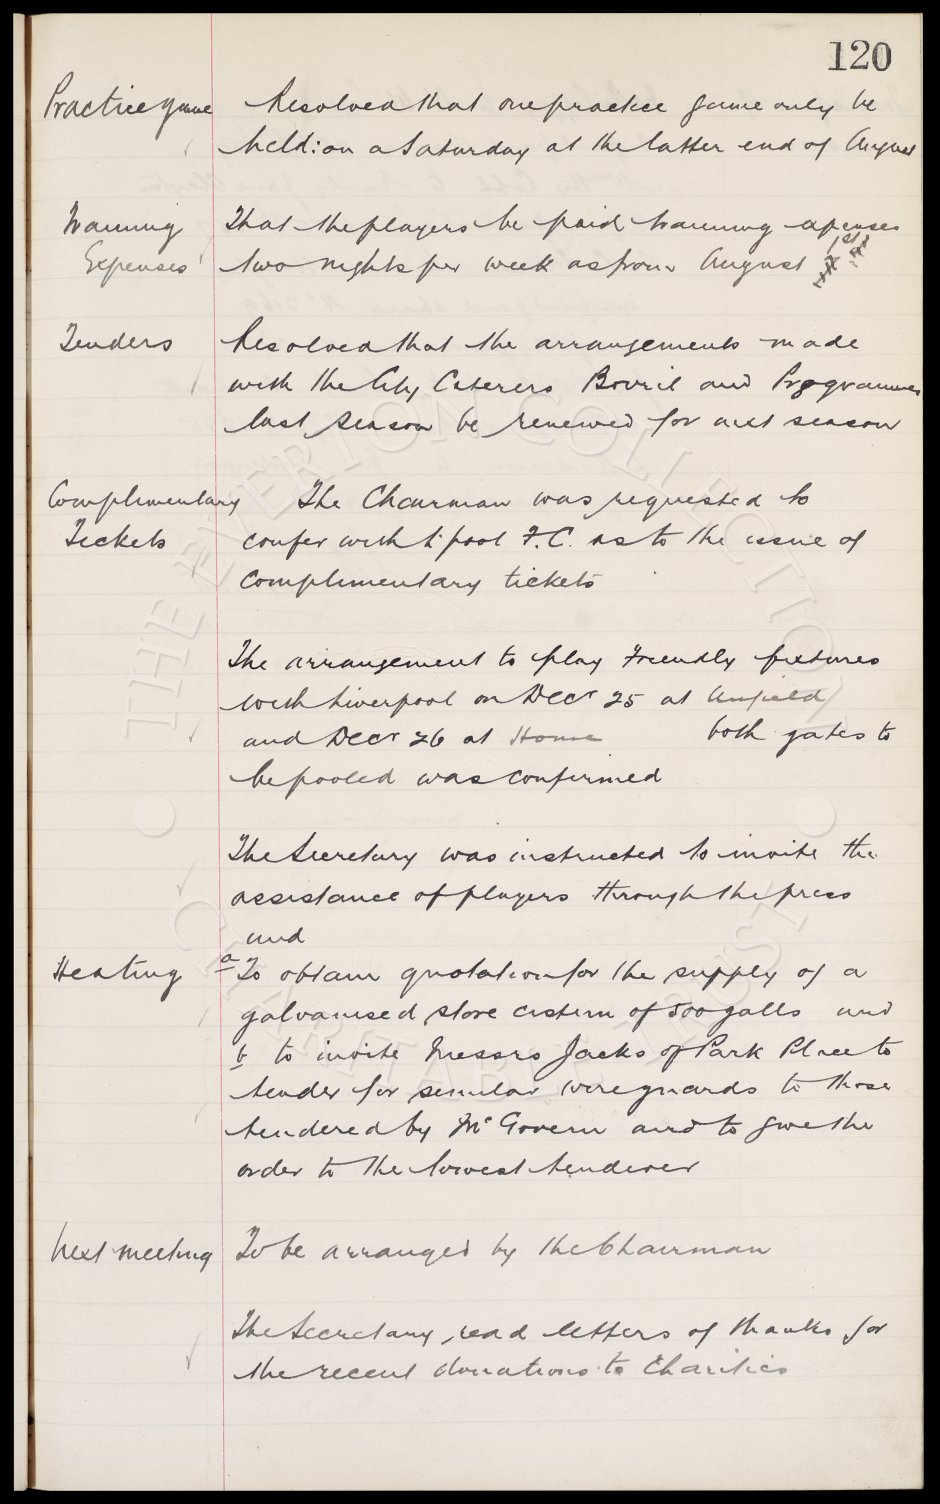 120
Practice game Resolved that one practice game only be
held: on a Saturday at the latter end of August
Training That the players be paid training expenses
Expenses two nights per week as from August 1st
Tenders Resolved that the arrangements made
with the City Caterers Bovril and Programmes
last season be renewed for next season
Complimentary The Chairman was requested to
Tickets confer with L'pool F.C. as to the issue of
complimentary tickets
The arrangement to play Friendly fixtures
with Liverpool on Decr 25 at Anfield
and Decr 26 at Home both gates to
be pooled was confirmed
The Secretary was instructed to invite the
assistance of players through the press
and
Heating a To obtain quotation for the supply of a
galvanised store cistern of 500 galls and
b to invite Messrs Jacks of Park Place to
tender for similar wireguards to those
tendered by Mc Govern and to give the
order to the lowest tenderer
Next meeting To be arranged by the Chairman
The Secretary read letters of thanks for
the recent donations to Charities
THE EVERTON COLLECTION
CHARITABLE TRUST